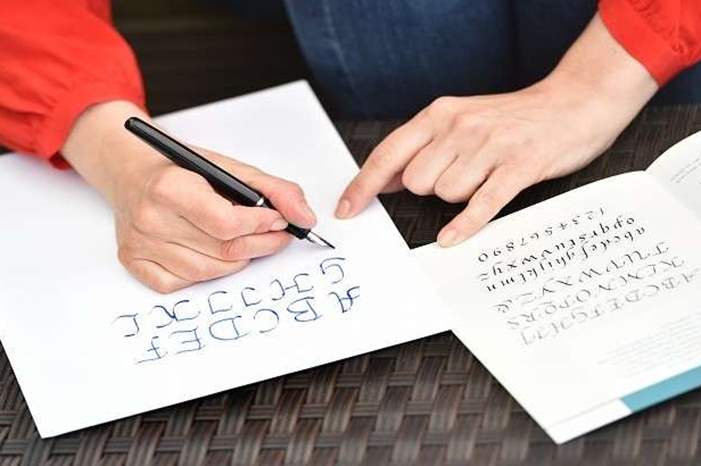 ABCDEF
GHIJKL
ABCDEFGHIJ
KLMNOPQRS
TUVWXYZ&
abcdefghijklmn
opqrstuvwxyz
1234567890